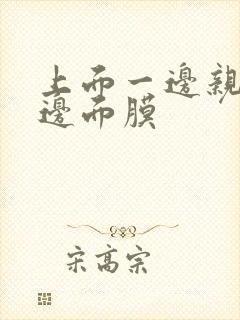 上而一邊親
邊而膜
宋高宗